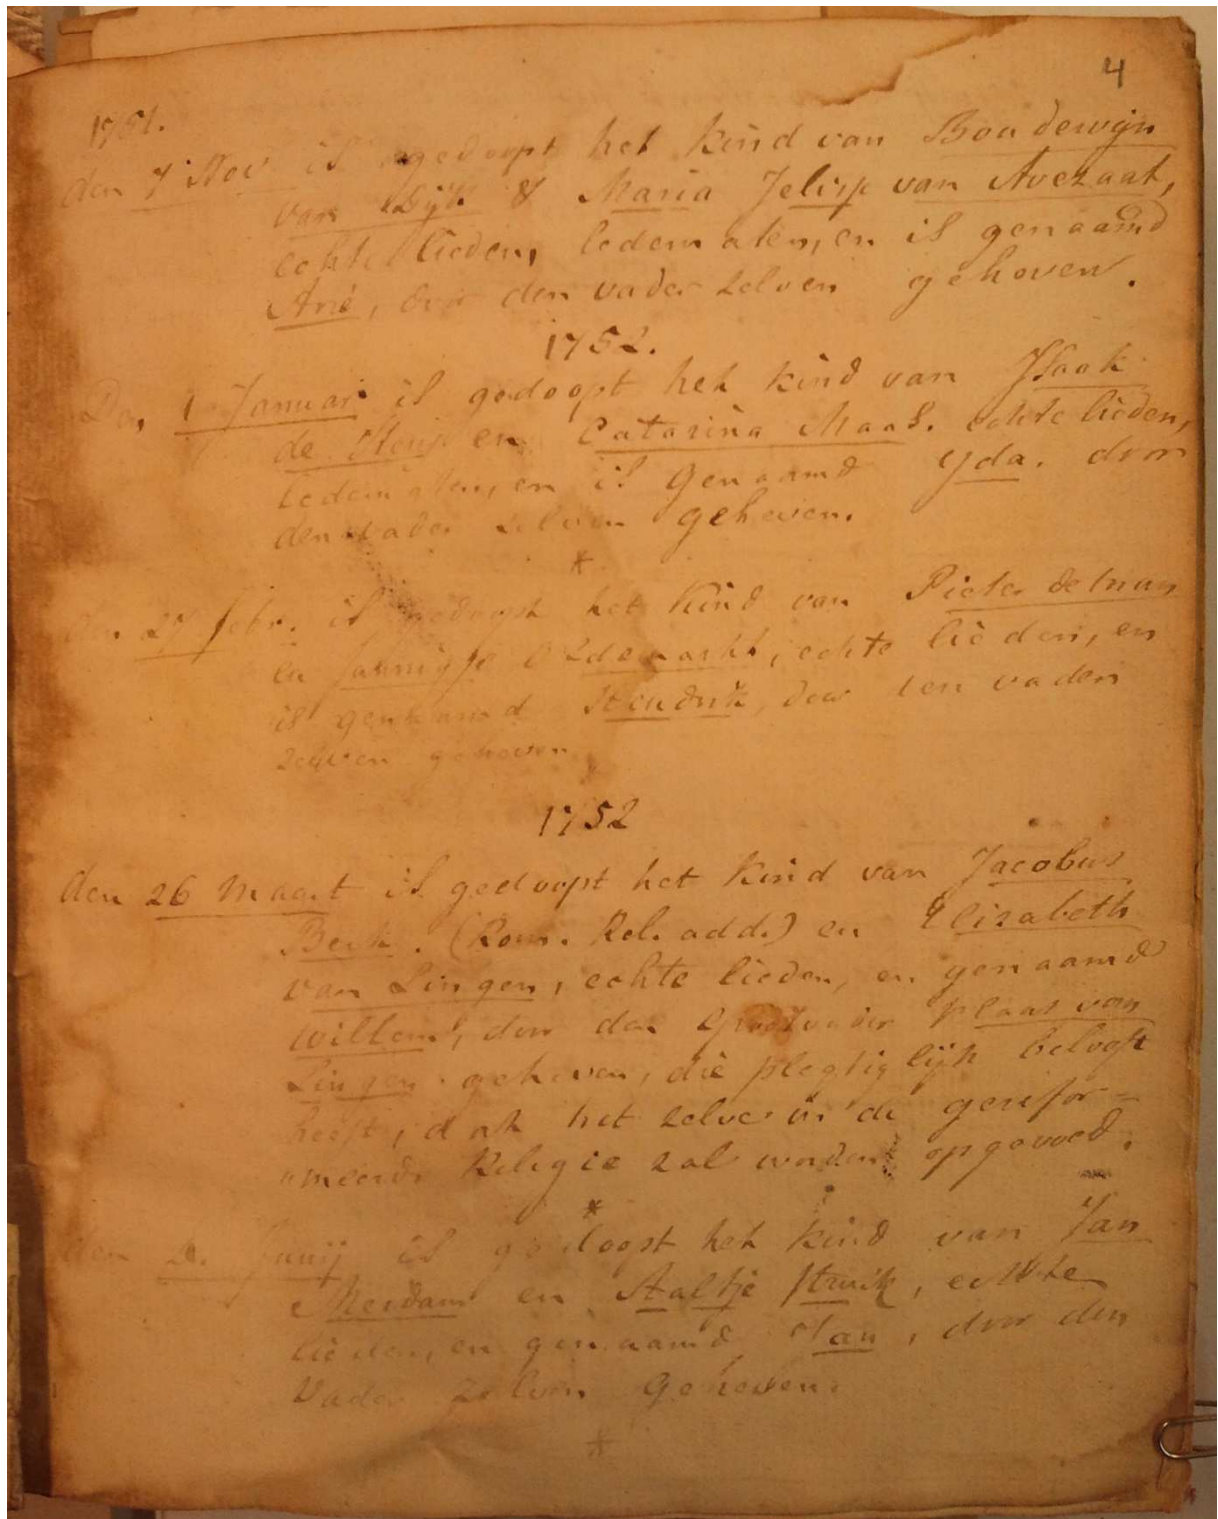 4
1751.
den 7 Nov is gedoopt het kind van Boudewijn
van Dijk & Maria Jelisse van Avezaat,
echte lieden, ledematen, en is genaamd
Arie, door den vader zelven geheven.
1752.
Den 1 Januari is gedoopt het kind van Isaak
de en Catarina Maas. echte lieden,
ledematen, en is genaamd Yda. door
den vader zelven geheven.
*
den 27 febr. is gedoopt het kind van Pieter
en echte lieden, en
is genaamd Hendrik, door den vader
zelven geheven
1752
den 26 Maart is gedoopt het kind van Jacobus
Berk. (Rom. Rel. add.) en Elizabeth
van Lingen, echte lieden, en genaamd
Willem, door den grootvader van
Lingen geheven, die plegtiglijk belooft
heeft, dat het zelve in de gerefor=
"meerde Religie zal worden opgevoed.
*
den 2. Junij is gedoopt het kind van Jan
Meerdam en Aaltje Struik, echte
lieden, en genaamd Jan, door den
Vader zelven geheven.
*